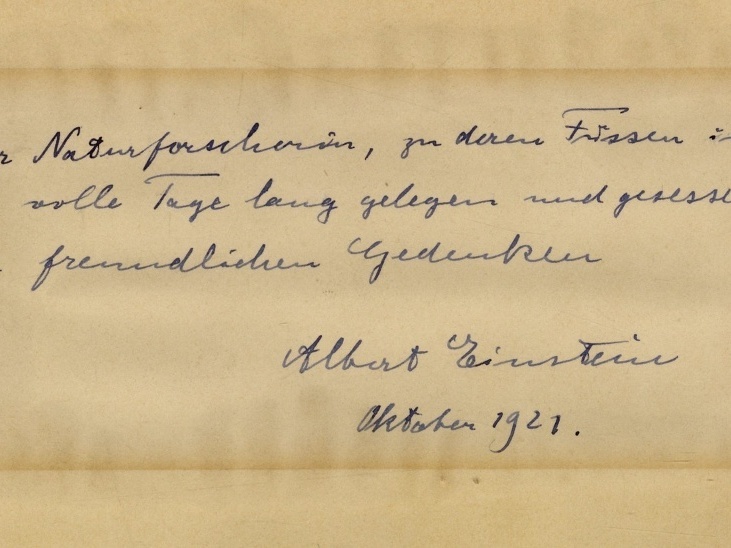 r Naturforscherin, zu deren Füssen i
volle Tage lang gelegen und gesesse
freundlichen Gedenken
Albert Einstein
Oktober 1921.